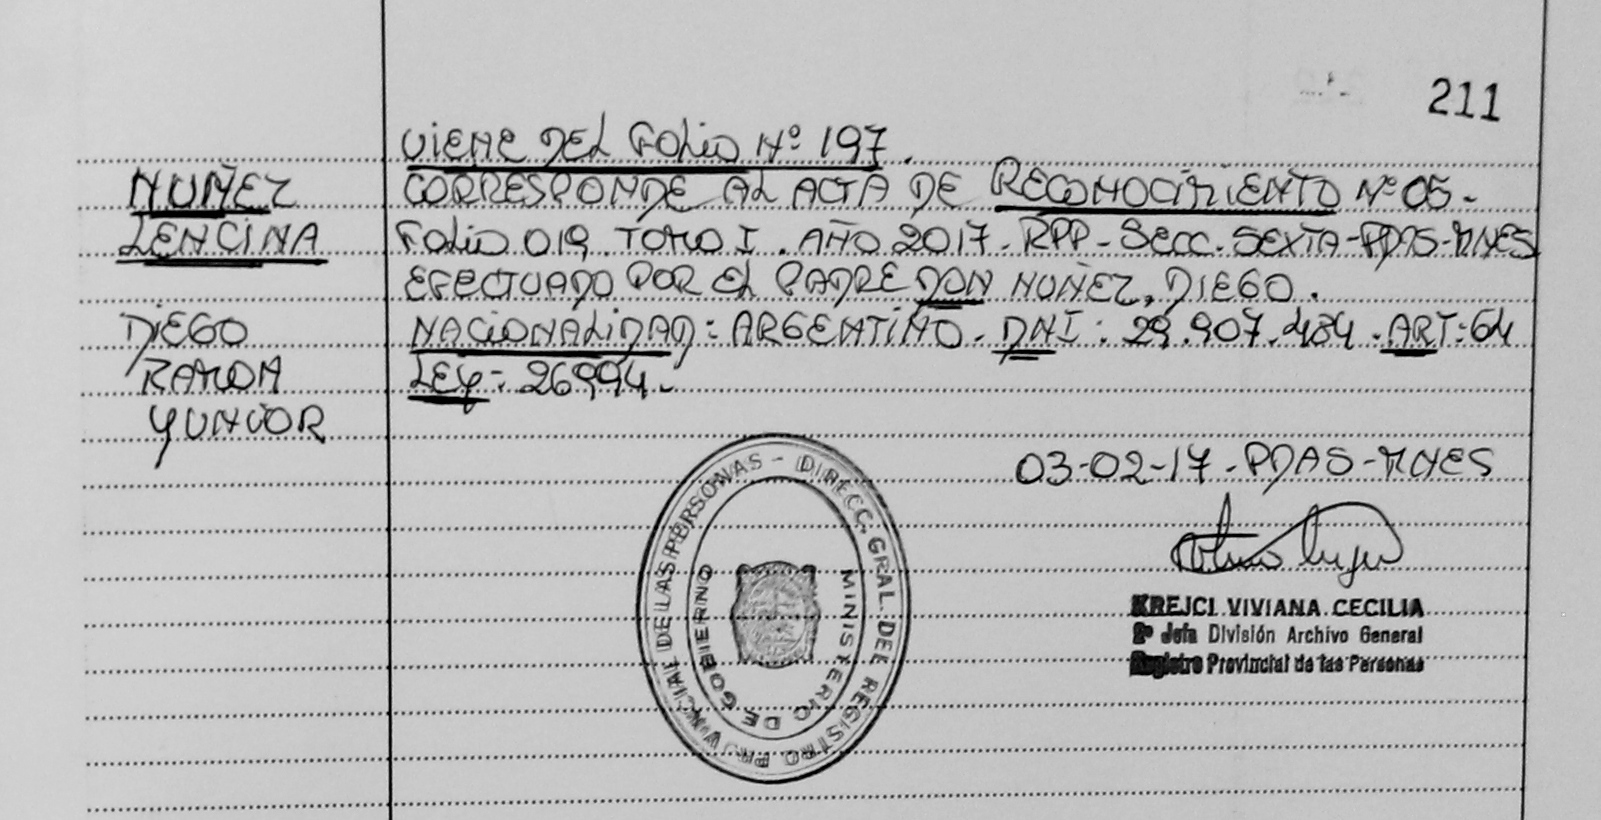 211
VIENE DEL FOLIO Nº 197.
NUÑEZ
LENCINA
DIEGO
RAMON
YUNIOR
CORRESPONDE AL ACTA DE RECONOCIMIENTO Nº 05-
FOLIO 019. TOMO I. AÑO 2017. RPP-SECC. SEXTA-PDAS-MNES
EFECTUADO POR EL PADRE DON NUÑEZ, DIEGO.
NACIONALIDAD: ARGENTINO. DNI: 29.907.434. ART: 64
LEY: 26994.
03-02-17-PDAS-MNES
KREJCI VIVIANA CECILIA
2º Jefa División Archivo General
Registro Provincial de las Personas
DIRECC. GRAL. DEL REGISTRO PROVINCIAL DE LAS PERSONAS -
MINISTERIO DE GOBIERNO